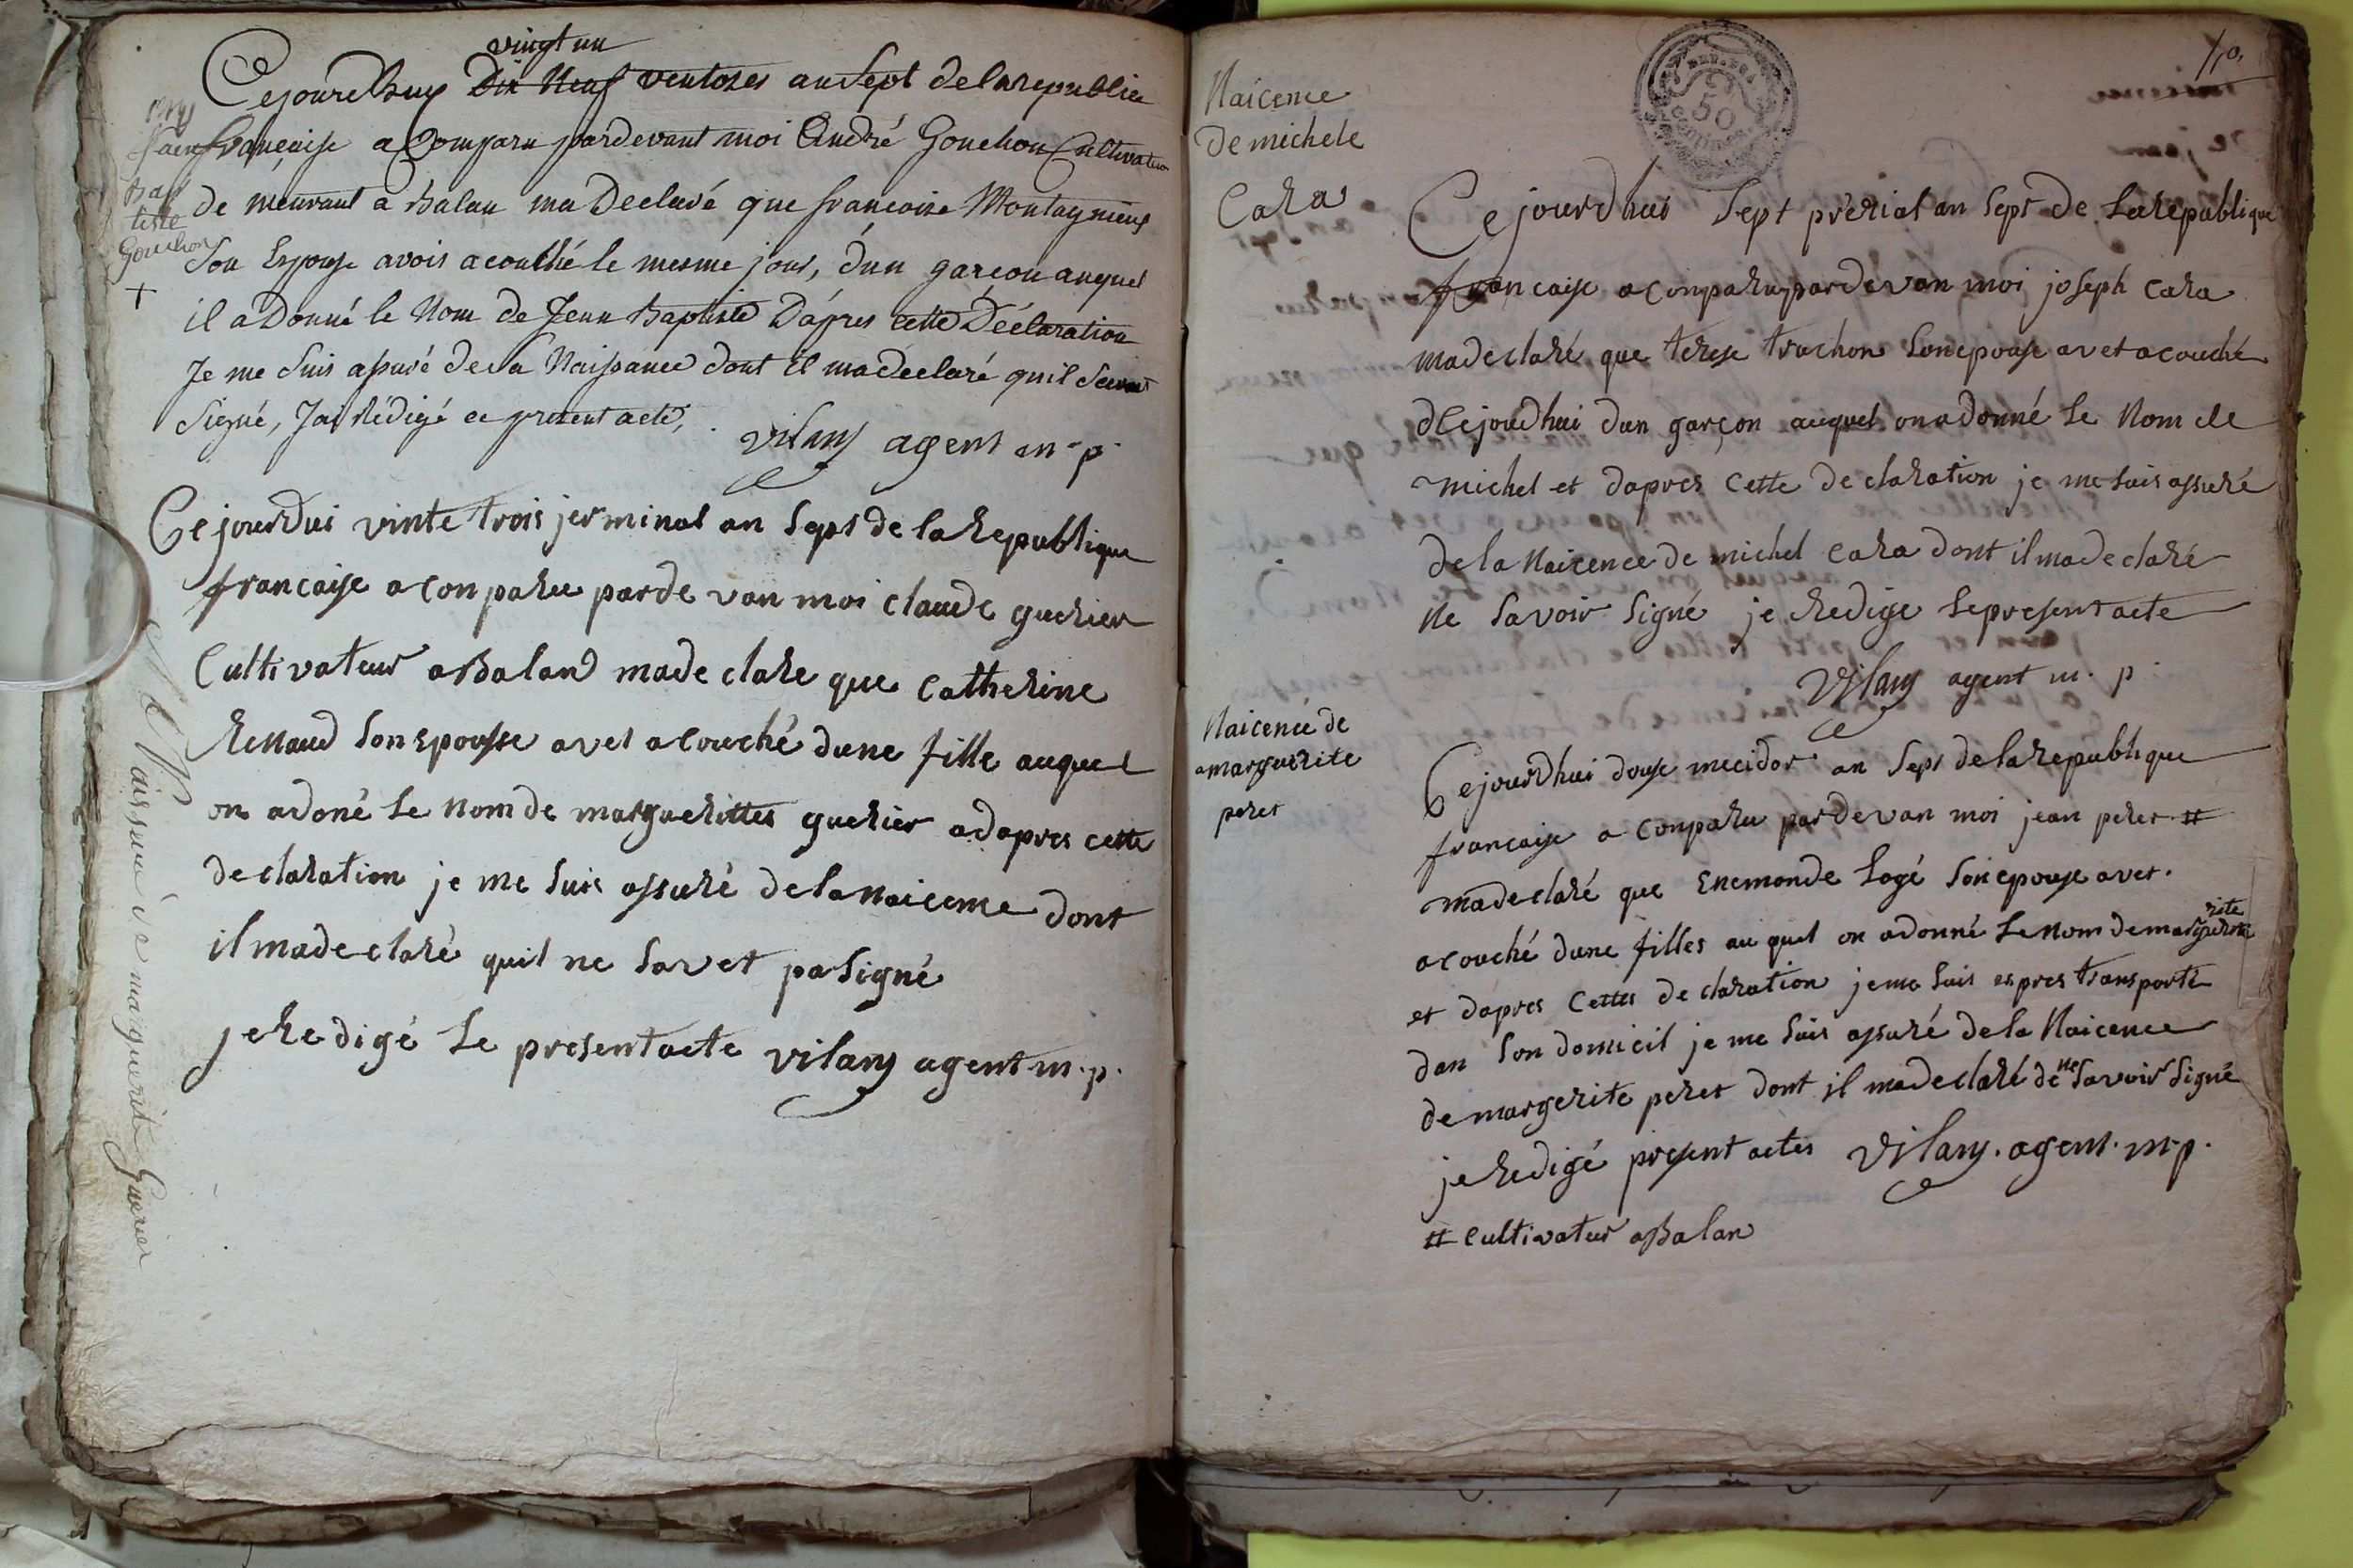 vingt un
Cejourdhuy Dix Neuf ventoses an Sept delarepublice
francaise a Comparu pardevant moi André Gouchon Cultivateur
de meurant a Balan ma Declaré que francoise Montagnieux
Son Espouse avois acouché le mesme jour, d'un garcon auquel
il a Donné le Nom de Jean Baptiste D'apres cette Déclaration
Je me suis assuré de la Naissance dont il ma declaré quil
Signé, J'ai Rédigé ce present acte,
vilany agent m. p.
Bap
tiste
Gouchon
+
Ce jourdui vinte trois jerminal an sept de la Republique
francaise a conparu parde van moi claude guerier
Cultivateur a Baland made clare que catherine
Renaud son epousse avet acouché dune fille auquel
on adoné le nom de marguerittes guerier adapres cette
declaration je me suis assuré de la naicence dont
il madeclaré quil ne savet pasigné
je redigé le present acte vilany agent m. p.
Naissance de marguerit Guerier
110.
50
Naicence
de michele
Cara
Ce jourdhui sept prérial an sept de la Republique
francaise a conparu pardevan moi joseph cara
madeclaré que terese trachon son epouse avet acouché
dCejoudhui dun garçon auquel on a donné le Nom de
michel et dapres cette declaration je me suis assuré
de la Naicence de michel cara dont il madeclaré
ne savoir signé je redige le present acte
vilany agent m. p.
Naicence de
marguerite
peret
Cejourdhui douse mecidor an sept de la republique
francaise a conparu pardevan moi jean peret #
madeclaré que Enemonde Logé son epouse avet.
acouché dune filles au quel on adonné le nom demarguerite
rite
et dapres cettes declaration jeme suis espres transporté
dan son domicil je me suis assuré de la Naicence
de margerite peret dont il madeclaré de ne savoir signé
je redigé present actes vilany. agent. m. p.
# cultivateur a Balan